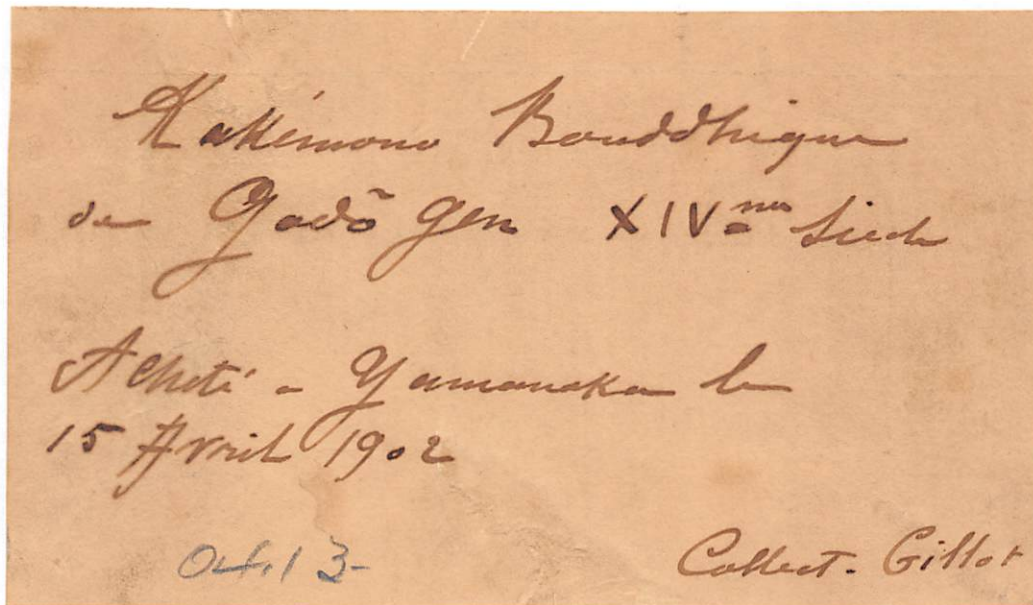 Kakémono Bouddhique
de Godô Gen XIVme Siècle
Acheté a Yamanaka le
15 Avril 1902
Collect. Gillot